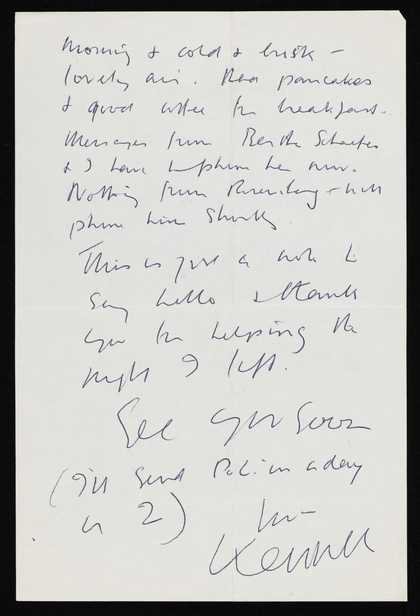 Morning & cold & brisk –
lovely air. Had pancakes
& good coffee for breakfast.
Messages from Bertha Schaefer
& I have to phone her now.
Nothing from Rosenberg – will
phone him shortly.
This is just a note to
say hello & thank
you for helping the
night I left.
See you soon
(I'll send P.C. in a day
or 2)
Kenneth